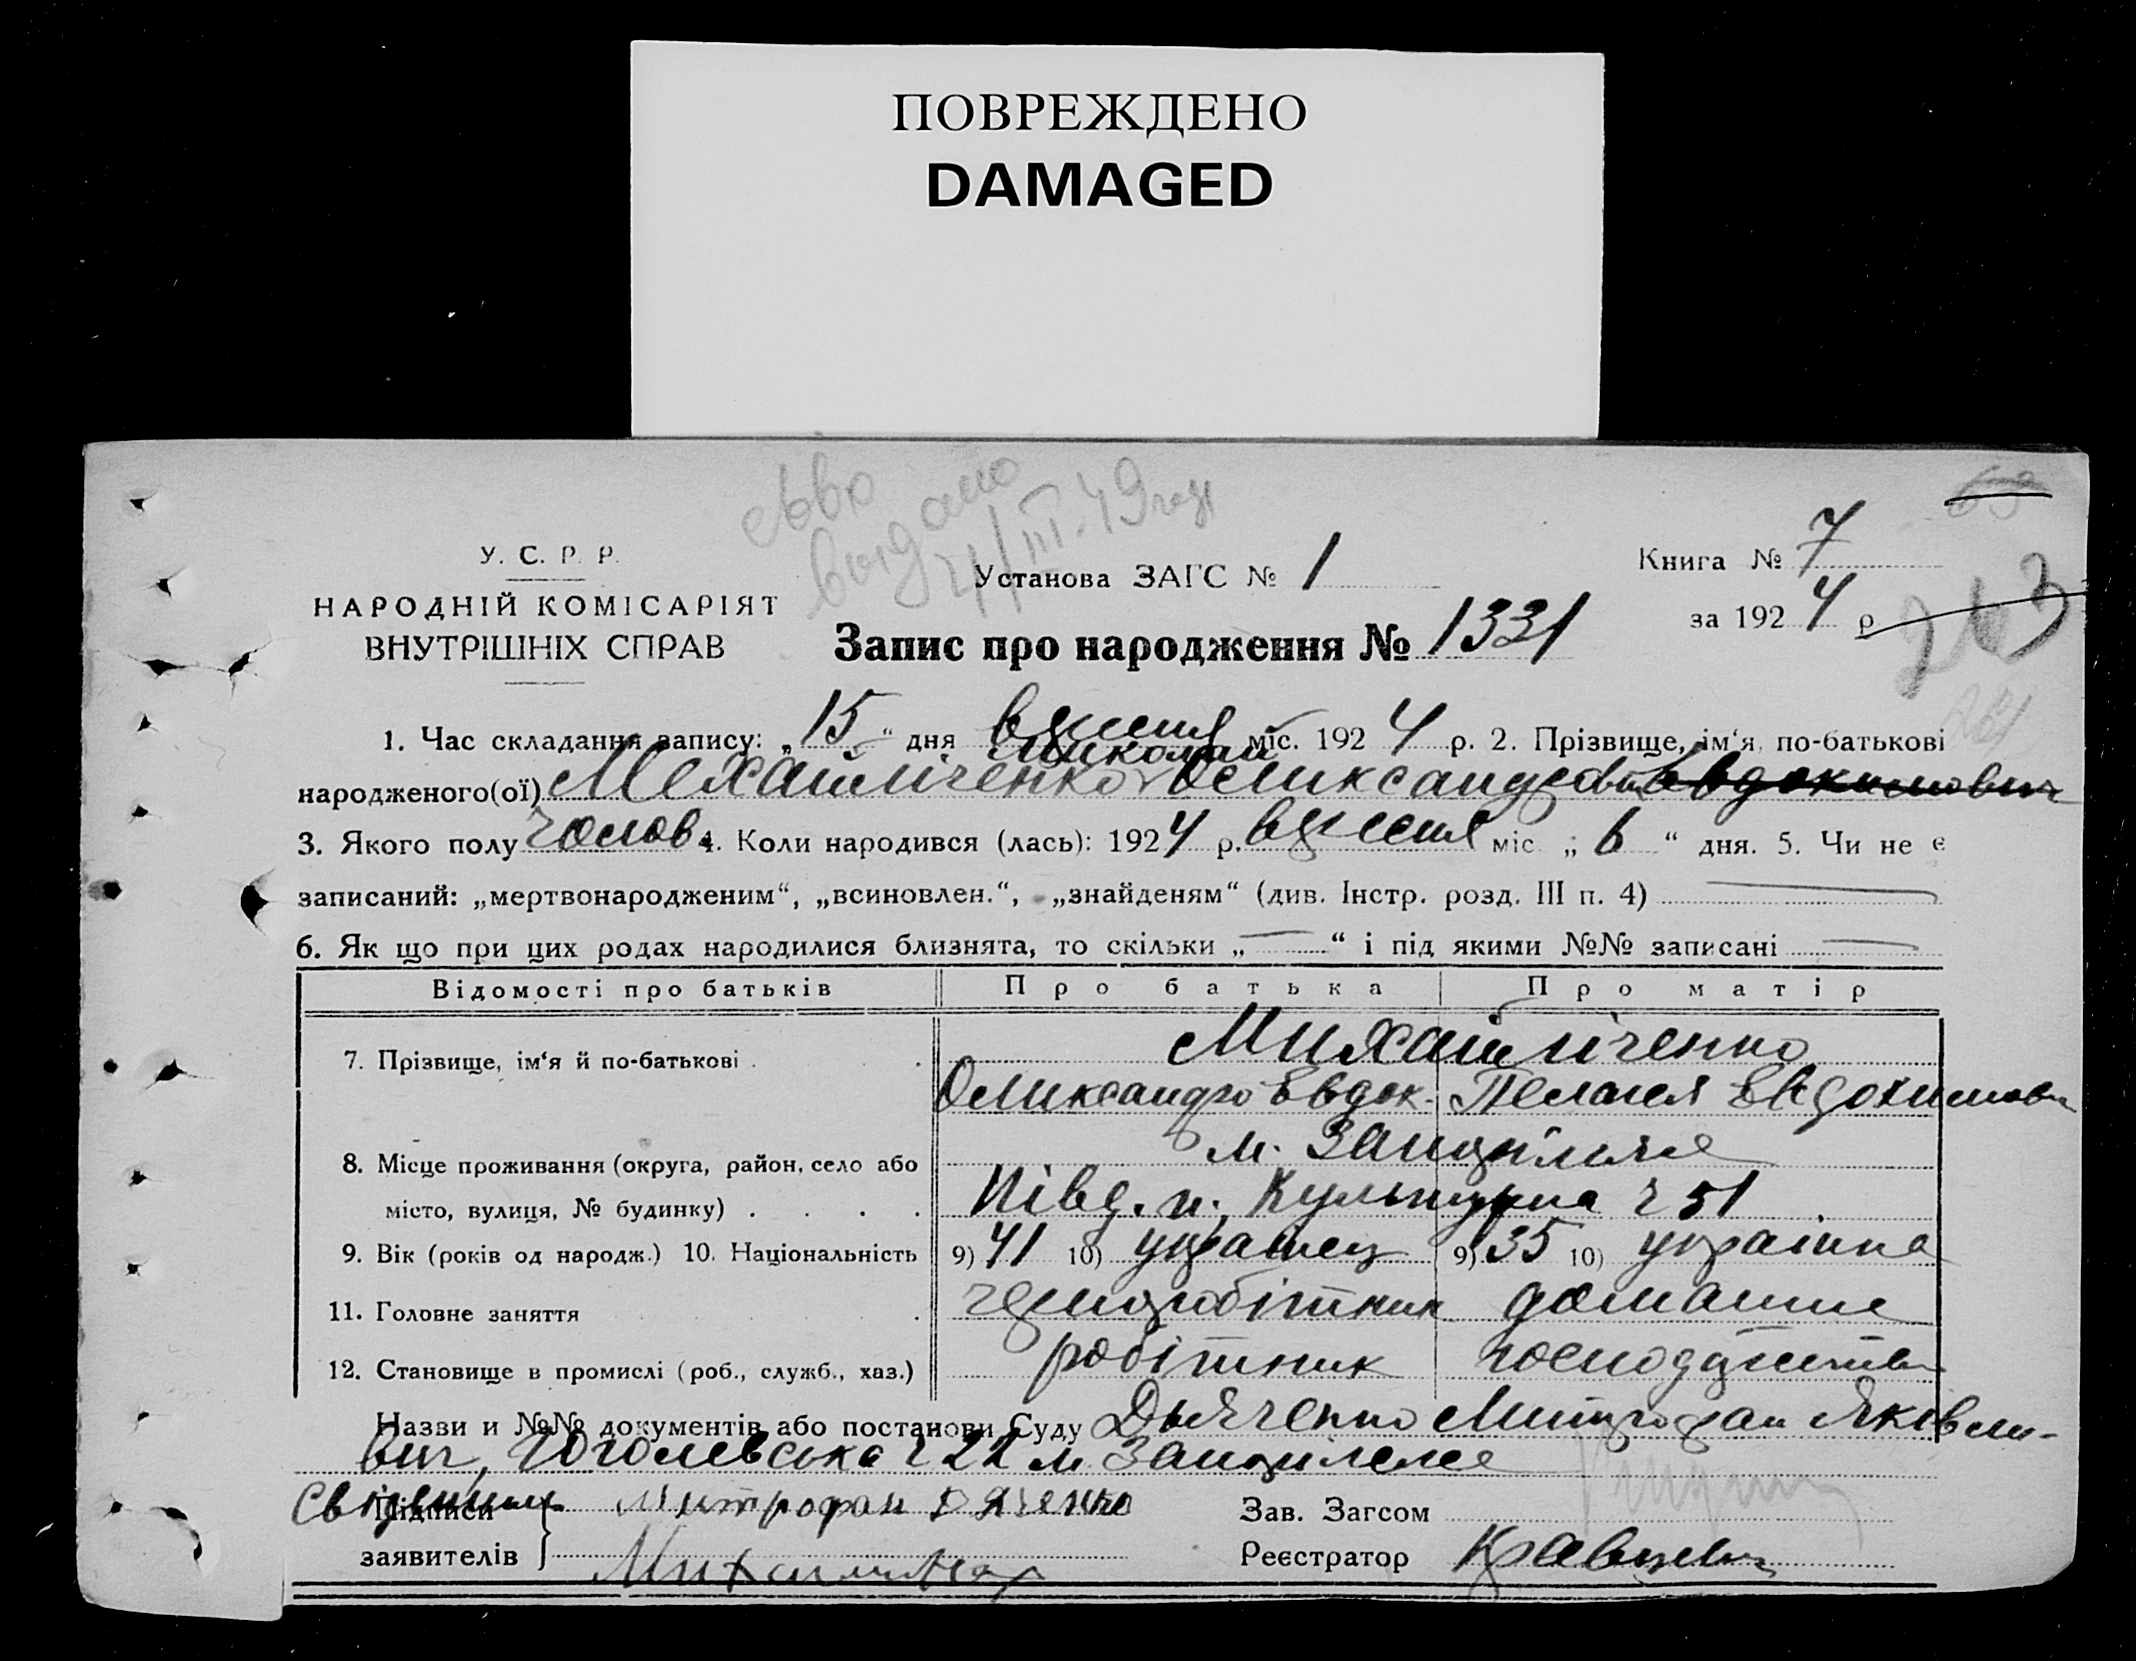 ПОВРЕЖДЕНО
DAMAGED
выдано
III.49
63
У. С. Р. Р.
НАРОДНІЙ КОМІСАРІЯТ
ВНУТРІШНІХ СПРАВ
Установа ЗАГС № 1
Книга № 7
за 1924 р
Запис про народження № 1331
263
1. Час складання запису: „15“ дня вересня міс. 1924 р. 2. Прізвище, ім‘я, по-батькові
Николай
народженого(ої) Михайліченко Олександров Евдокимович
3. Якого полу чолов. 4. Коли народився (лась): 1924 р. вересня міс „6“ дня. 5. Чи не є
записаний: „мертвонародженим“, „всиновлен.“, „знайденям“ (див. Інстр. розд. III п. 4)
6. Як що при цих родах народилися близнята, то скільки „ “ і під якими №№ записані
Відомості про батьків Про батька Про матір
7. Прізвище, ім‘я й по-батькові Михайліченко
Олександро Евдок. Пелагея Евдокимовн
8. Місце проживання (округа, район, село або м.
місто, вулиця, № будинку) Півд. п. Культурна ч 51
9. Вік (років од народж.) 10. Національність 9) 41 10) українец 9) 35 10) українка
11. Головне заняття чорноробітник домашнє
12. Становище в промислі (роб., служб., хаз.) робітник господарство
Назви и №№ документів або постанови Суду Дьяченко Митрофан Яківле-
вич, Гоголевська ч 22 м
Свідчини
Підписи заявителів Митрофан Дяченко
Зав. Загсом
Реєстратор Кравцевич